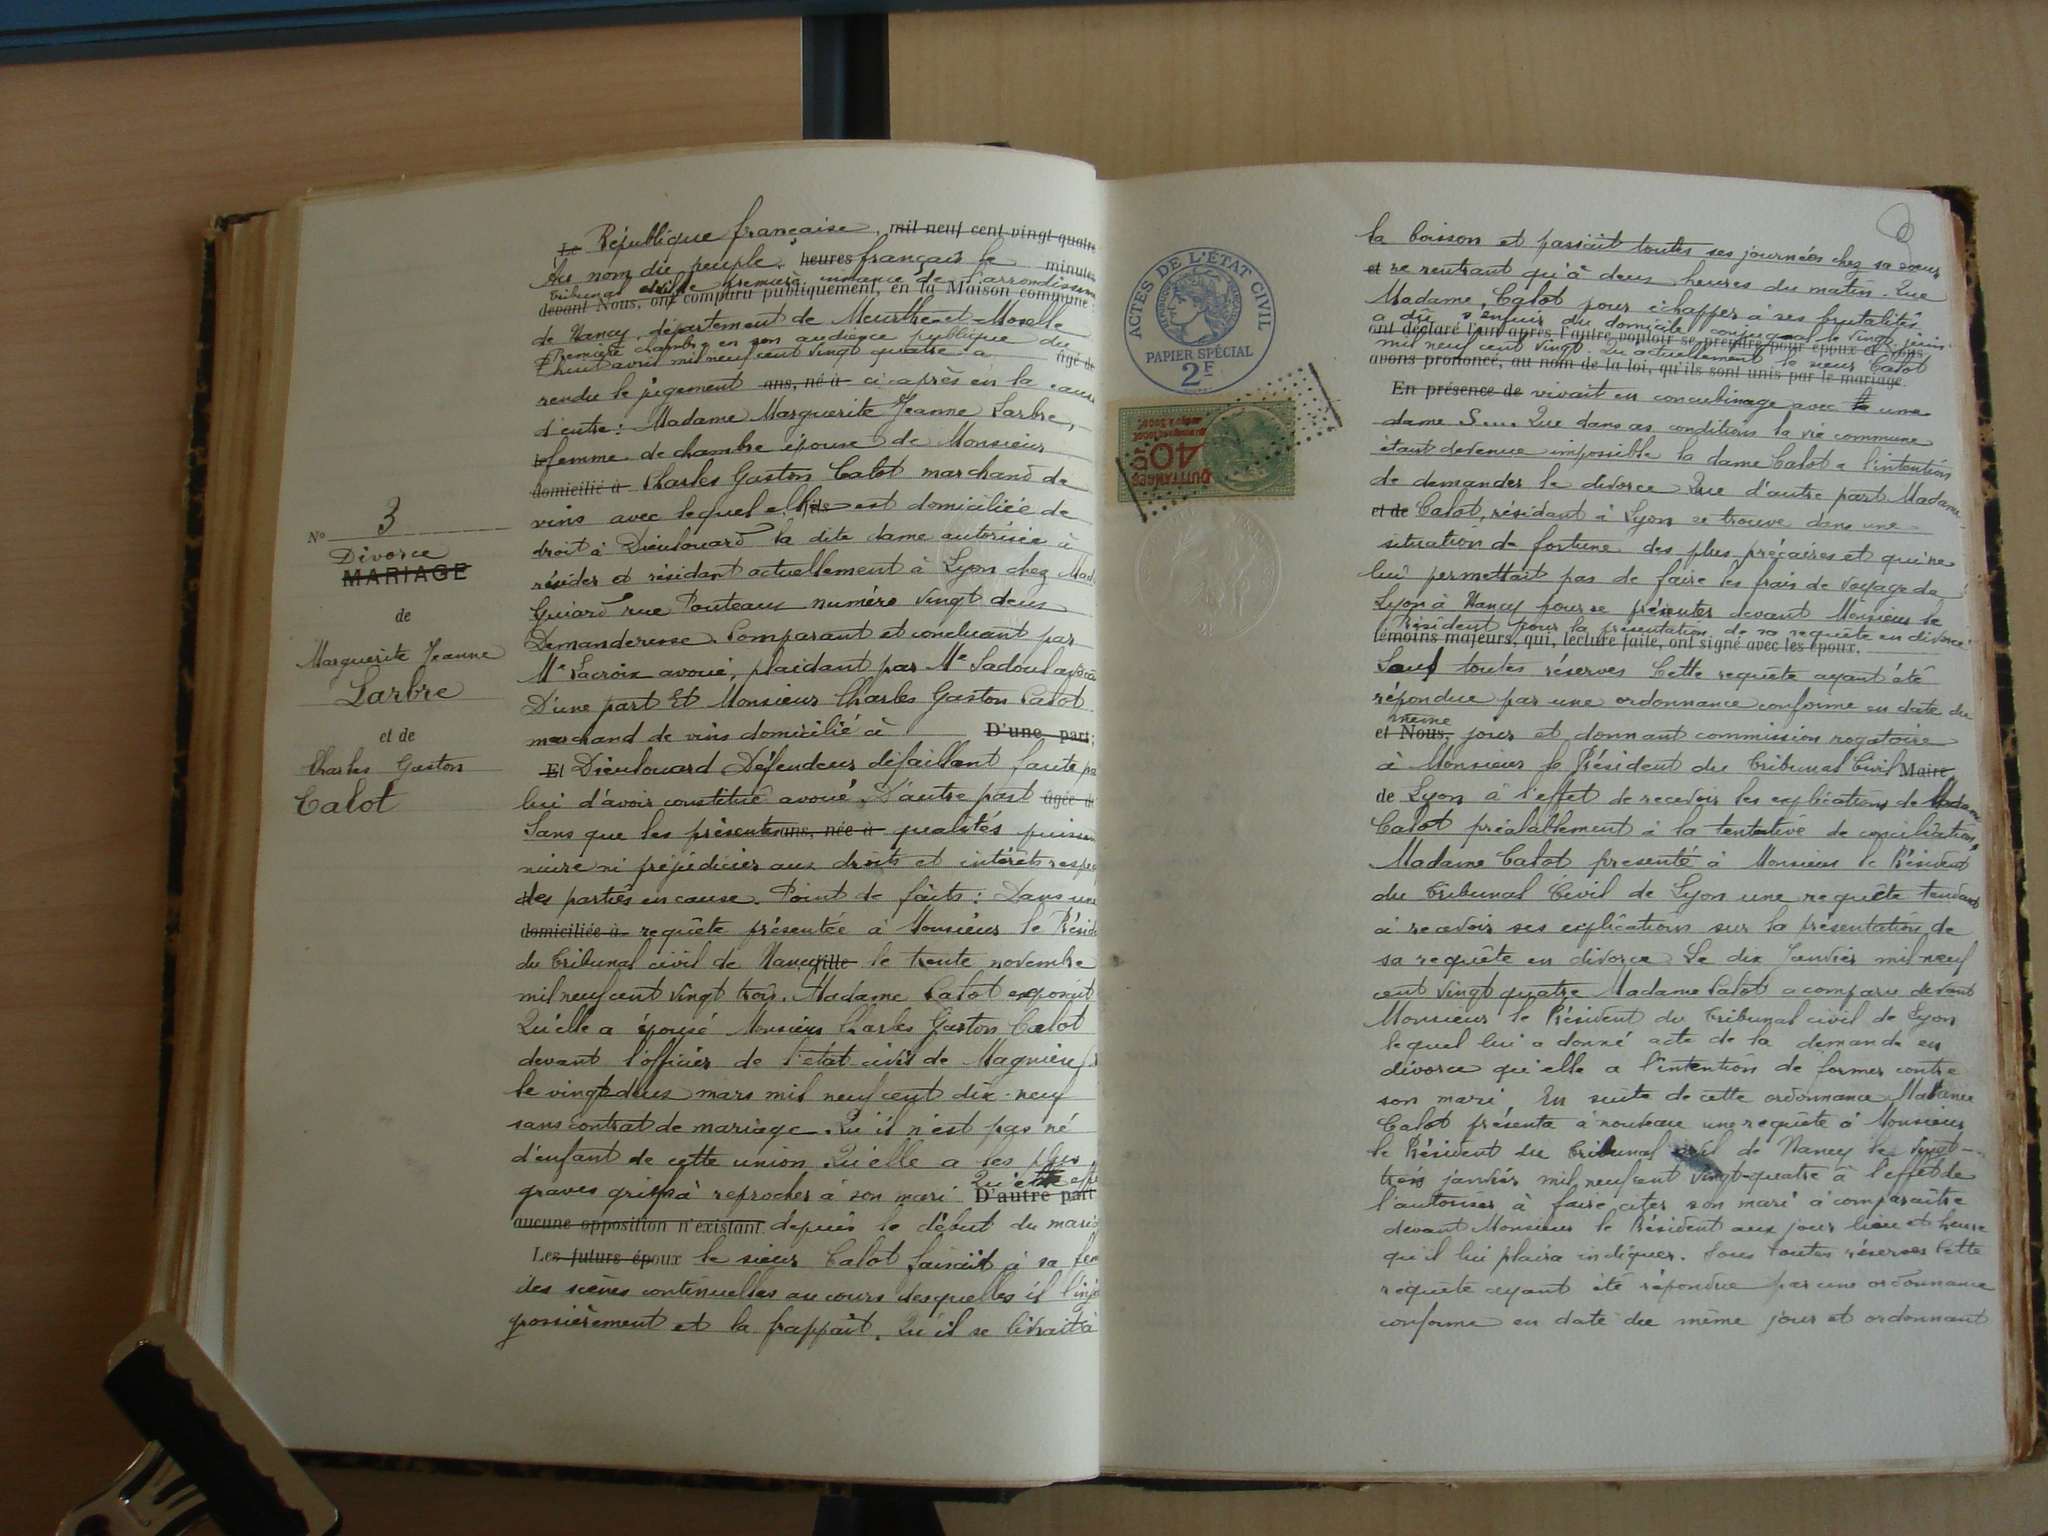 N° 3
Divorce
MARIAGE
de
Marguerite Jeanne
Larbre
et de
Charles Gaston
Calot
Le République française, mil neuf cent vingt quatre
Au nom du peuple heures français le minutes
Tribunal civil de première instance de l'arrondissem
devant Nous, ont comparu publiquement, en la Maison commune:
de Nancy, département de Meurthe-et-Moselle
Première chambre en son audience publique du
huit avril mil neuf cent vingt quatre a âgé de
rendu le jugement ans, né à ci-après en la cause
d'entre: Madame Marguerite Jeanne Larbre,
femme de chambre épouse de Monsieur
domicilié à Charles Gaston Calot marchand de
vins avec lequel elle fils est domiciliée de
droit à Dieulouard la dite dame autorisée à
résider et résidant actuellement à Lyon chez Mad
Guiard rue Pouteau numéro vingt deux
Demanderesse. Comparant et concluant par
Me Lacroix avoué, plaidant par Me Sadoul avoca
D'une part Et Monsieur Charles Gaston Calot
marchand de vins domicilié à D'une part;
Et Dieulouard Défendeur défaillant faute pa
lui d'avoir constitué avoué. D'autre part âgée de
Sans que les présentes ans, née à qualités puissen
nuire ni préjudicier aux droits et intérêts respe
des parties en cause. Point de faits: Dans une
domiciliée à requête présentée à Monsieur le Présid
du Tribunal civil de Nancy fille le trente novembre
mil neuf cent vingt trois. Madame Calot exposait
Qu'elle a épousé Monsieur Charles Gaston Calot
devant l'officier de l'état-civil de Magnières
le vingt deux mars mil neuf cent dix-neuf
sans contrat de mariage. Qu'il n'est pas né
d'enfant de cette union. Qu'elle a les plus
graves griefs à reprocher à son mari. D'autre part
aucune opposition n'existant depuis le début du maria
Les futurs époux le sieur Calot faisait à sa fem
des scènes continuelles au cours desquelles il l'inju
grossièrement et la frappait. Qu'il se livrait à
ACTES DE L'ÉTAT CIVIL
PAPIER SPÉCIAL
2F
QUITTANCES
40c
la boisson et passait toutes ses journées chez sa sœur
et ne rentrant qu'à deux heures du matin. Que
Madame Calot pour échapper à ses brutalités
a dû s'enfuir du domicile conjugal le vingt juin
ont déclaré l'un après l'autre vouloir se prendre pour époux et Nous
mil neuf cent vingt. Qu'actuellement le sieur Calot
avons prononcé, au nom de la loi, qu'ils sont unis par le mariage.
En présence de vivait en concubinage avec une
dame S.... Que dans ces conditions la vie commune
étant devenue impossible la dame Calot a l'intention
de demander le divorce Que d'autre part Madame
et de Calot, résidant à Lyon se trouve dans une
situation de fortune des plus précaires et qui ne
lui permettait pas de faire les frais de voyage de
Lyon à Nancy pour se présenter devant Monsieur le
Président pour la présentation de sa requête en divorce
témoins majeurs, qui, lecture faite, ont signé avec les époux.
Sauf toutes réserves Cette requête ayant été
répondue par une ordonnance conforme en date du
même
et Nous, jour et donnant commission rogatoire
à Monsieur le Président du Tribunal Civil Maire
de Lyon à l'effet de recevoir les explications de Madame
Calot préalablement à la tentative de conciliation,
Madame Calot présenté à Monsieur le Président
du Tribunal Civil de Lyon une requête tendant
à recevoir ses explications sur la présentation de
sa requête en divorce Le dix Janvier mil neuf
cent vingt quatre Madame Calot a comparu devant
Monsieur le Président du Tribunal civil de Lyon
lequel lui a donné acte de la demande en
divorce qu'elle a l'intention de former contre
son mari. En suite de cette ordonnance Madame
Calot présenta à nouveau une requête à Monsieur
le Président du Tribunal civil de Nancy le vingt-
trois janvier mil neuf cent vingt-quatre à l'effet de
l'autoriser à faire citer son mari à comparaître
devant Monsieur le Président aux jour lieu et heure
qu'il lui plaira indiquer. Sous toutes réserves Cette
requête ayant été répondue par une ordonnance
conforme en date du même jour et ordonnant